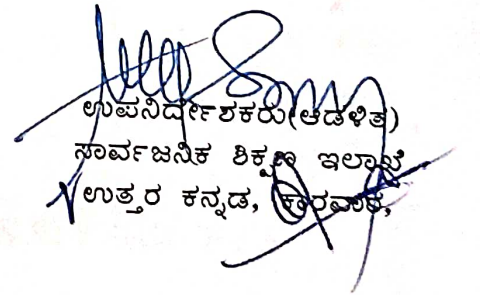 ಉಪನಿರ್ದೇಶಕರು(ಆಡಳಿತ)
ಸಾರ್ವಜನಿಕ ಶಿಕ್ಷಣ ಇಲಾಖೆ
ಉತ್ತರ ಕನ್ನಡ, ಕಾರವಾರ,